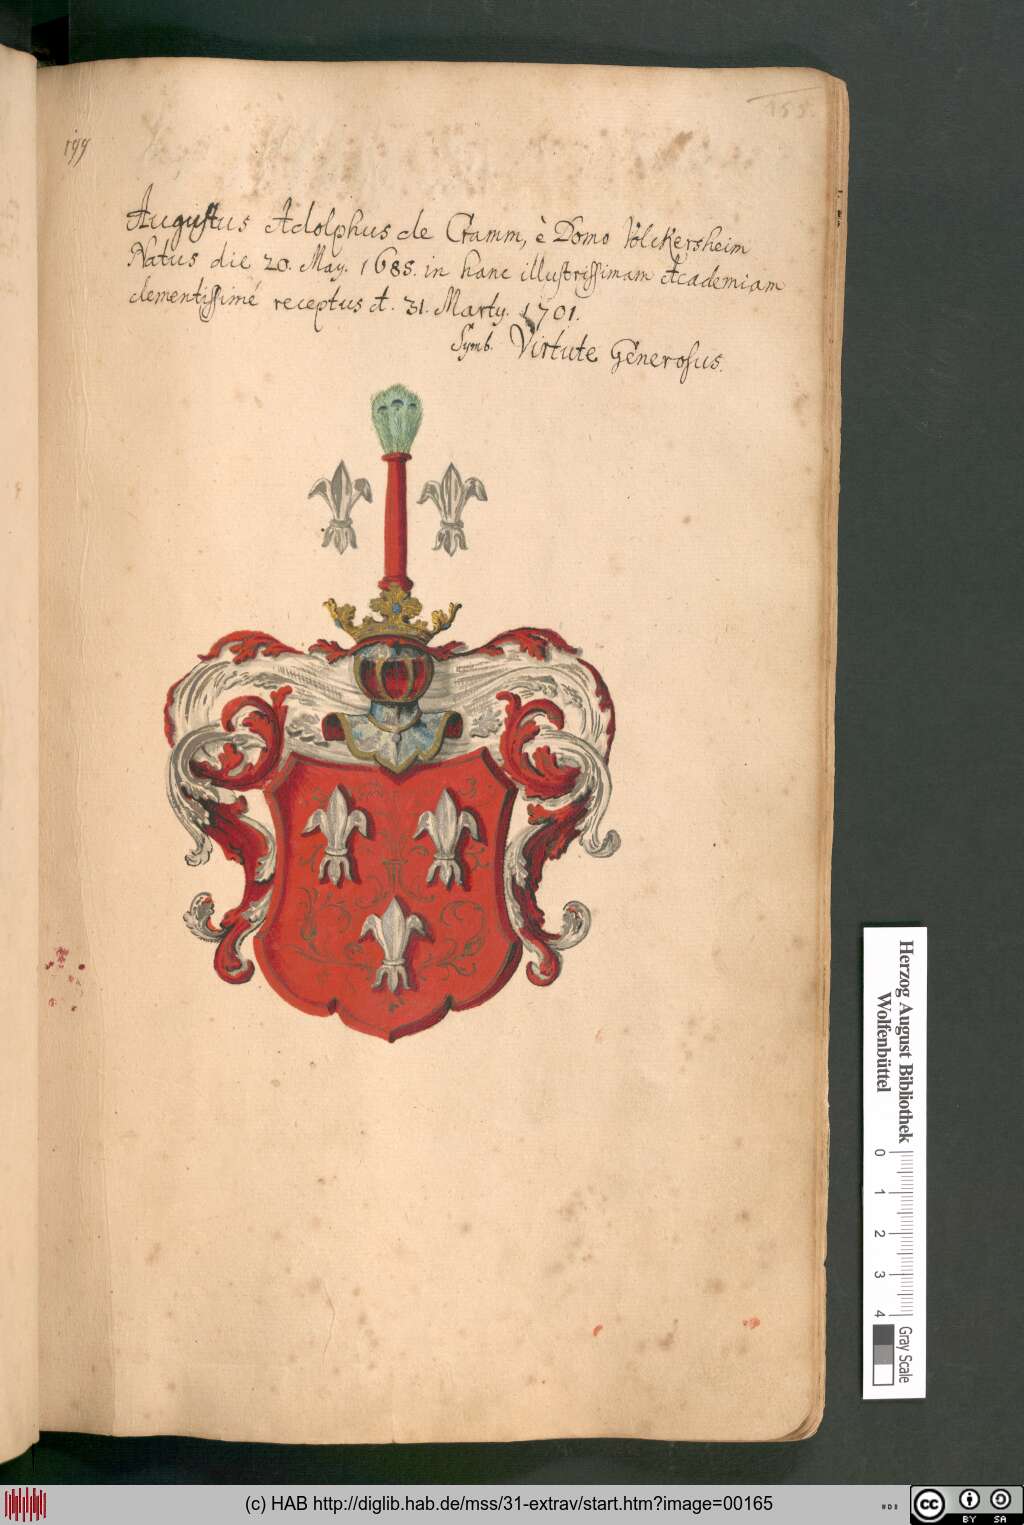 199
155.
Augustus Adolphus de Cramm, è Domo Völckersheim
Natus die 20. May. 1685. in hanc illustrissimam Academiam
clementissimé receptus A. 31. Marty. 1701.
Symb. Virtute Generosus.
Herzog August Bibliothek
Wolfenbüttel
0 1 2 3 4
Gray Scale
(c) HAB http://diglib.hab.de/mss/31-extrav/start.htm?image=00165
cc BY SA